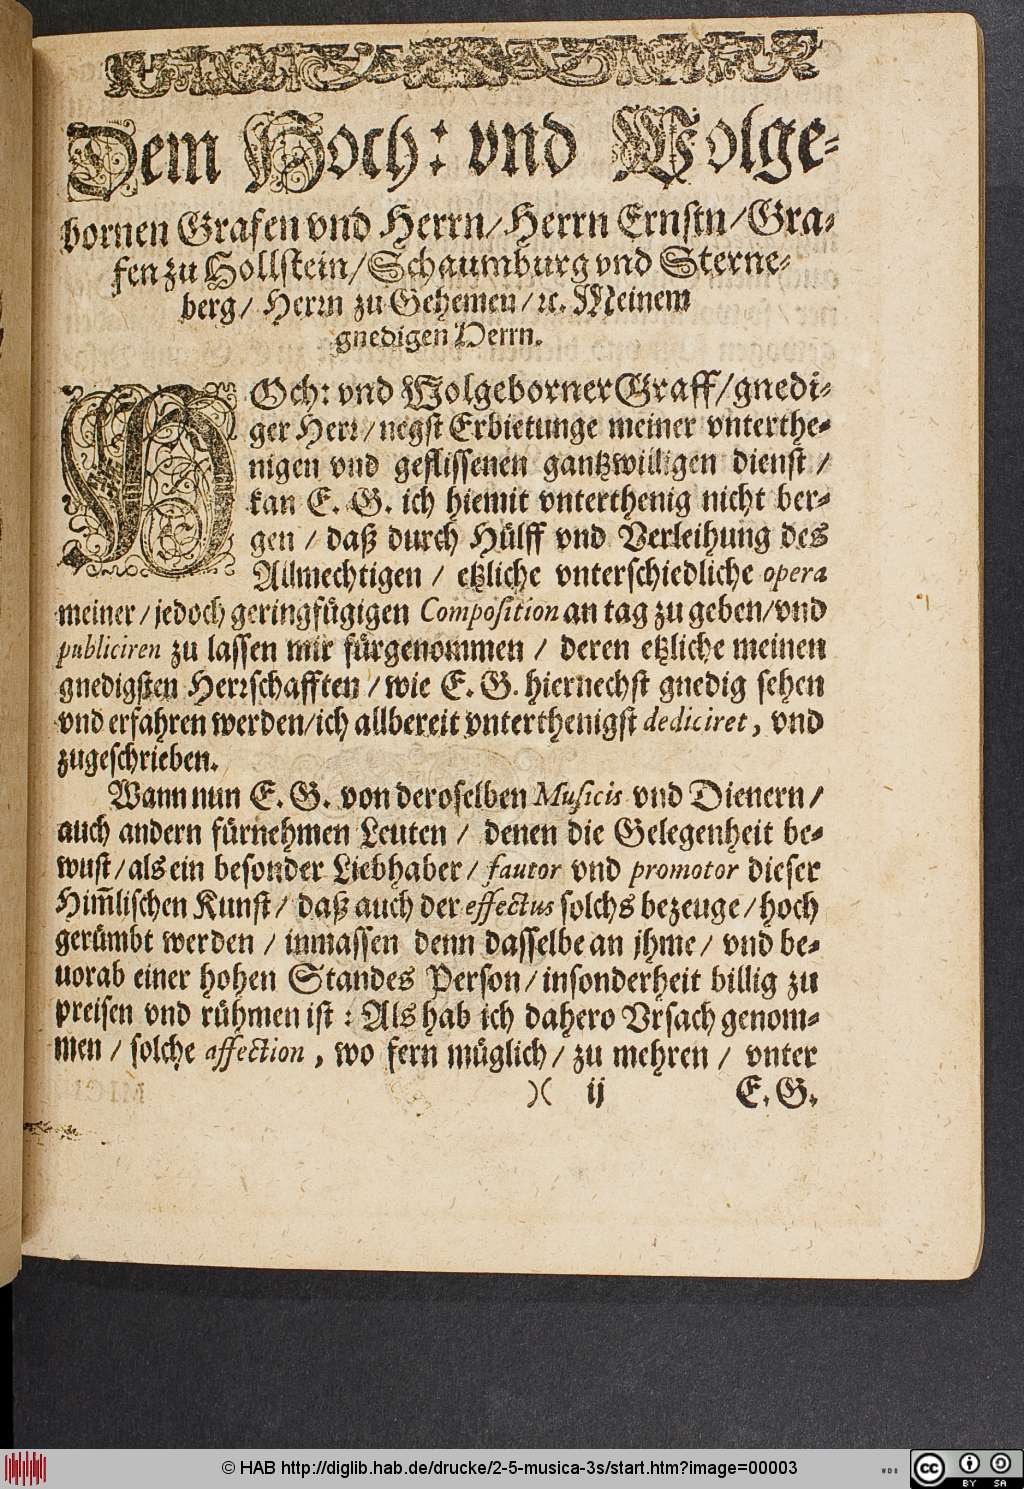 Dem Hoch: vnd Wolge-
bornen Grafen vnd Herrn/ Herrn Ernstn/ Gra-
fen zu Hollstein/ Schaumburg vnd Sterne-
berg/ Herrn zu Gehemen/ ꝛc. Meinem
gnedigen Herrn.
HOch: vnd Wolgeborner Graff/ gnedi-
ger Herr/ negst Erbietunge meiner vnterthe-
nigen vnd geflissenen gantzwilligen dienst /
kan E. G. ich hiemit vnterthenig nicht ber-
gen / daß durch Hülff vnd Verleihung des
Allmechtigen / etzliche vnterschiedliche opera
meiner / jedoch geringfügigen Composition an tag zu geben/ vnd
publiciren zu lassen mir fürgenommen / deren etzliche meinen
gnedigsten Herrschafften / wie E. G. hiernechst gnedig sehen
vnd erfahren werden/ ich allbereit vnterthenigst dediciret, vnd
zugeschrieben.
Wann nun E. G. von deroselben Musicis vnd Dienern /
auch andern fürnehmen Leuten / denen die Gelegenheit be-
wust / als ein besonder Liebhaber / fautor vnd promotor dieser
Him̃lischen Kunst / daß auch der effectus solchs bezeuge / hoch
gerümbt werden / inmassen denn dasselbe an jhme / vnd be-
uorab einer hohen Standes Person / insonderheit billig zu
preisen vnd rühmen ist : Als hab ich dahero Vrsach genom-
men / solche affection , wo fern müglich / zu mehren / vnter
)( ij E. G.
© HAB http://diglib.hab.de/drucke/2-5-musica-3s/start.htm?image=00003
WDB
cc BY SA